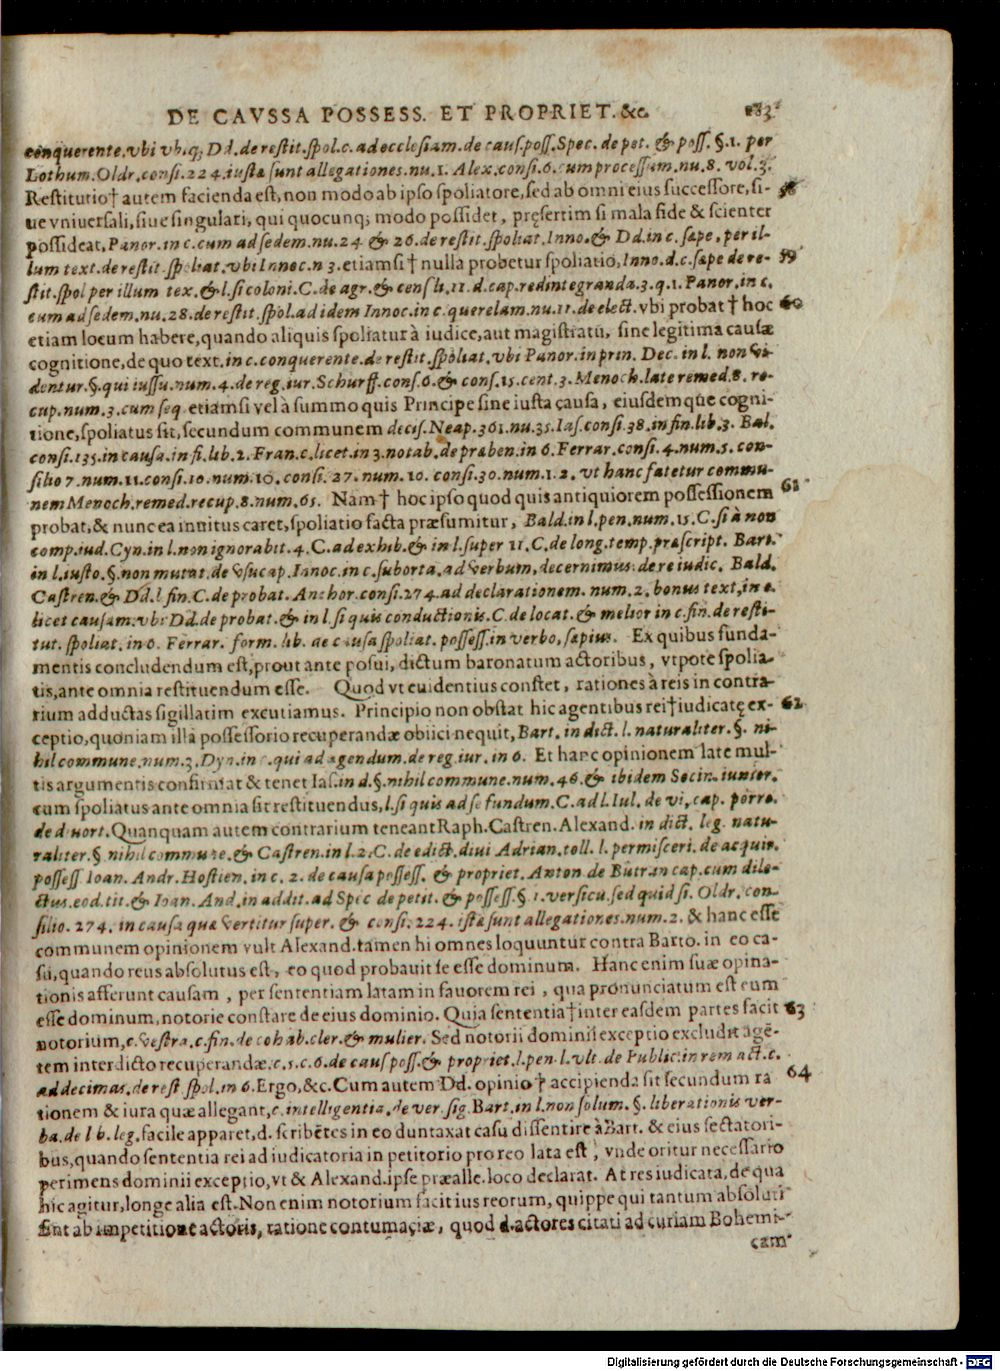 DE CAVSSA POSSESS. ET PROPRIET. &c. 183
conquerente. vbi vbiq; Dd. de restit. spol. c. ad ecclesiam. de caus. poss. Spec. de pet. & poss. §. 1. per
Lothum. Oldr. consi. 224. iusta sunt allegationes. nu. 1. Alex. consi. 6. cum processum. nu. 8. vol. 3.
Restitutio† autem facienda est, non modo ab ipso spoliatore, sed ab omni eius successore, si- 58
ue vniuersali, siue singulari, qui quocunq; modo possidet, pręsertim si mala fide & scienter
possideat, Panor. in c. cum ad sedem. nu. 24 & 26. de restit. spoliat. Inno. & Dd. in c. sape, per il-
lum text. de restit. spoliat. vbi Innoc. n 3. etiamsi † nulla probetur spoliatio, Inno. d. c. sape de re- 59
stit. spol per illum tex. & l. si coloni. C. de agr. & cens li. 11. d. cap. redintegranda. 3. q. 1. Panor. in c.
cum ad sedem. nu. 28. de restit. spol. ad idem Innoc. in c. querelam. nu. 11. de elect. vbi probat † hoc 60
etiam locum habere, quando aliquis spoliatur à iudice, aut magistratu, sine legitima causæ
cognitione, de quo text. in c. conquerente. de restit. spoliat. vbi Panor. in prin. Dec. in l. non vi-
dentur. §. qui iussu. num. 4. de reg. iur. Schurff. cons. 6. & cons. 15. cent. 3. Menoch. late remed. 8. re-
cup. num. 3. cum seq. etiamsi vel à summo quis Principe sine iusta causa, eiusdemque cogni-
tione, spoliatus sit, secundum communem decis. Neap. 361. nu. 35. Ias. consi. 38. in fin. lib. 3. Bal.
consi. 135. in causa. in fi. lib. 2. Fran. c. licet. in 3. notab. de præben. in 6. Ferrar. consi. 4. num. 5. con-
silio 7. num. 11. consi. 10. num. 10. consi. 27. num. 10. consi. 30. num. 1. 2. vt hanc fatetur commu-
nem Menoch. remed. recup. 8. num. 65. Nam † hoc ipso quod quis antiquiorem possessionem 61
probat, & nunc ea inuitus caret, spoliatio facta præsumitur, Bald. in l. pen. num. 15. C. si à non
comp. iud. Cyn. in l. non ignorabit. 4. C. ad exhib. & in l. super 11. C. de long. temp. præscript. Bart.
in l. iusto. §. non mutat. de vsucap. Innoc. in c. suborta. ad verbum, decernimus. de re iudic. Bald.
Castren. & Dd. l fin. C. de probat. Anchor. consi. 274. ad declarationem. num. 2. bonus text. in c.
licet causam. vbi Dd. de probat. & in l. si quis conductionis. C. de locat. & melior in c. fin. de resti-
tut. spoliat. in 6. Ferrar. form. lib. de causa spoliat. possess. in verbo, sapius. Ex quibus funda-
mentis concludendum est, prout ante posui, dictum baronatum actoribus, vtpote spolia-
tis, ante omnia restituendum esse. Quod vt euidentius constet, rationes à reis in contra-
rium adductas sigillatim excutiamus. Principio non obstat hic agentibus rei † iudicatę ex- 62
ceptio, quoniam illa possessorio recuperandæ obiici nequit, Bart. in dict. l. naturaliter. §. ni-
hil commune. num. 3. Dyn. in c. qui ad agendum. de reg. iur. in 6. Et hanc opinionem late mul-
tis argumentis confirmat & tenet Ias. in d. §. nihil commune. num. 46. & ibidem Socin. iunior.
cum spoliatus ante omnia sit restituendus, l. si quis ad se fundum. C. ad l. Iul. de vi, cap. porro.
de diuort. Quanquam autem contrarium teneant Raph. Castren. Alexand. in dict. leg. natu-
raliter. § nihil commune. & Castren. in l. 2. C. de edict. diui Adrian. toll. l. permisceri. de acquir.
possess Ioan. Andr. Hostien. in c. 2. de causa possess. & propriet. Anton de Butr. in cap. cum dile-
ctus. eod. tit. & Ioan. And. in addit. ad Spec de petit. & possess. § 1. versicu. sed quid si. Oldr. con-
silio. 274. in causa quæ vertitur super. & consi. 224. ista sunt allegationes. num. 2. & hanc esse
communem opinionem vult Alexand. tamen hi omnes loquuntur contra Barto. in eo ca-
su, quando reus absolutus est, eo quod probauit se esse dominum. Hanc enim suæ opina-
tionis afferunt causam, per sententiam latam in fauorem rei, qua pronunciatum est eum
esse dominum, notorie constare de eius dominio. Quia sententia † inter easdem partes facit 63
notorium, c. vestra. c. fin. de cohab. cler. & mulier. Sed notorii dominii exceptio excludit agē-
tem interdicto recuperandæ. c. 1. c. 6. de caus poss. & propriet. l. pen. l. vlt. de Public. in rem act. c.
ad decimas. de rest spol. in 6. Ergo, &c. Cum autem Dd. opinio † accipienda sit secundum ra 64
tionem & iura quæ allegant, c. intelligentia. de ver. sig. Bart. in l. non solum. §. liberationis ver-
ba. de lib. leg. facile apparet, d. scribētes in eo duntaxat casu dissentire à Bart. & eius sectatori-
bus, quando sententia rei adiudicatoria in petitorio pro reo lata est, vnde oritur necessario
perimens dominii exceptio, vt & Alexand. ipse præalle. loco declarat. At res iudicata, de qua
hic agitur, longe alia est. Non enim notorium facit ius reorum, quippe qui tantum absoluti
sint ab impetitione actoris, ratione contumaciæ, quod d. actores citati ad curiam Bohemi-
cam
Digitalisierung gefördert durch die Deutsche Forschungsgemeinschaft - DFG